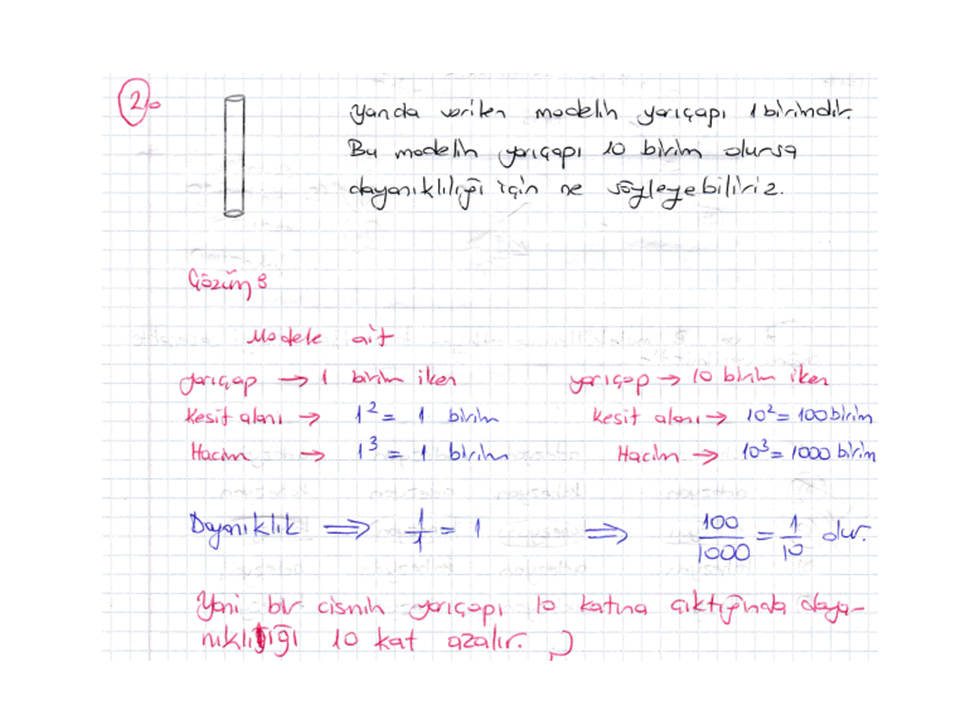 2.
Yanda verilen modelin yarıçapı 1 birimdir.
Bu modelin yarıçapı 10 birim olursa
dayanıklılığı için ne söyleyebiliriz.
Çözüm:
Modele ait
yarıçap → 1 birim iken yarıçap → 10 birim iken
Kesit alanı → 1² = 1 birim Kesit alanı → 10² = 100 birim
Hacim → 1³ = 1 birim Hacim → 10³ = 1000 birim
Dayanıklık ⇒ 1/1 = 1 ⇒ 100/1000 = 1/10 olur.
Yani bir cismin yarıçapı 10 katına çıktığında daya-
nıklılığı 10 kat azalır.